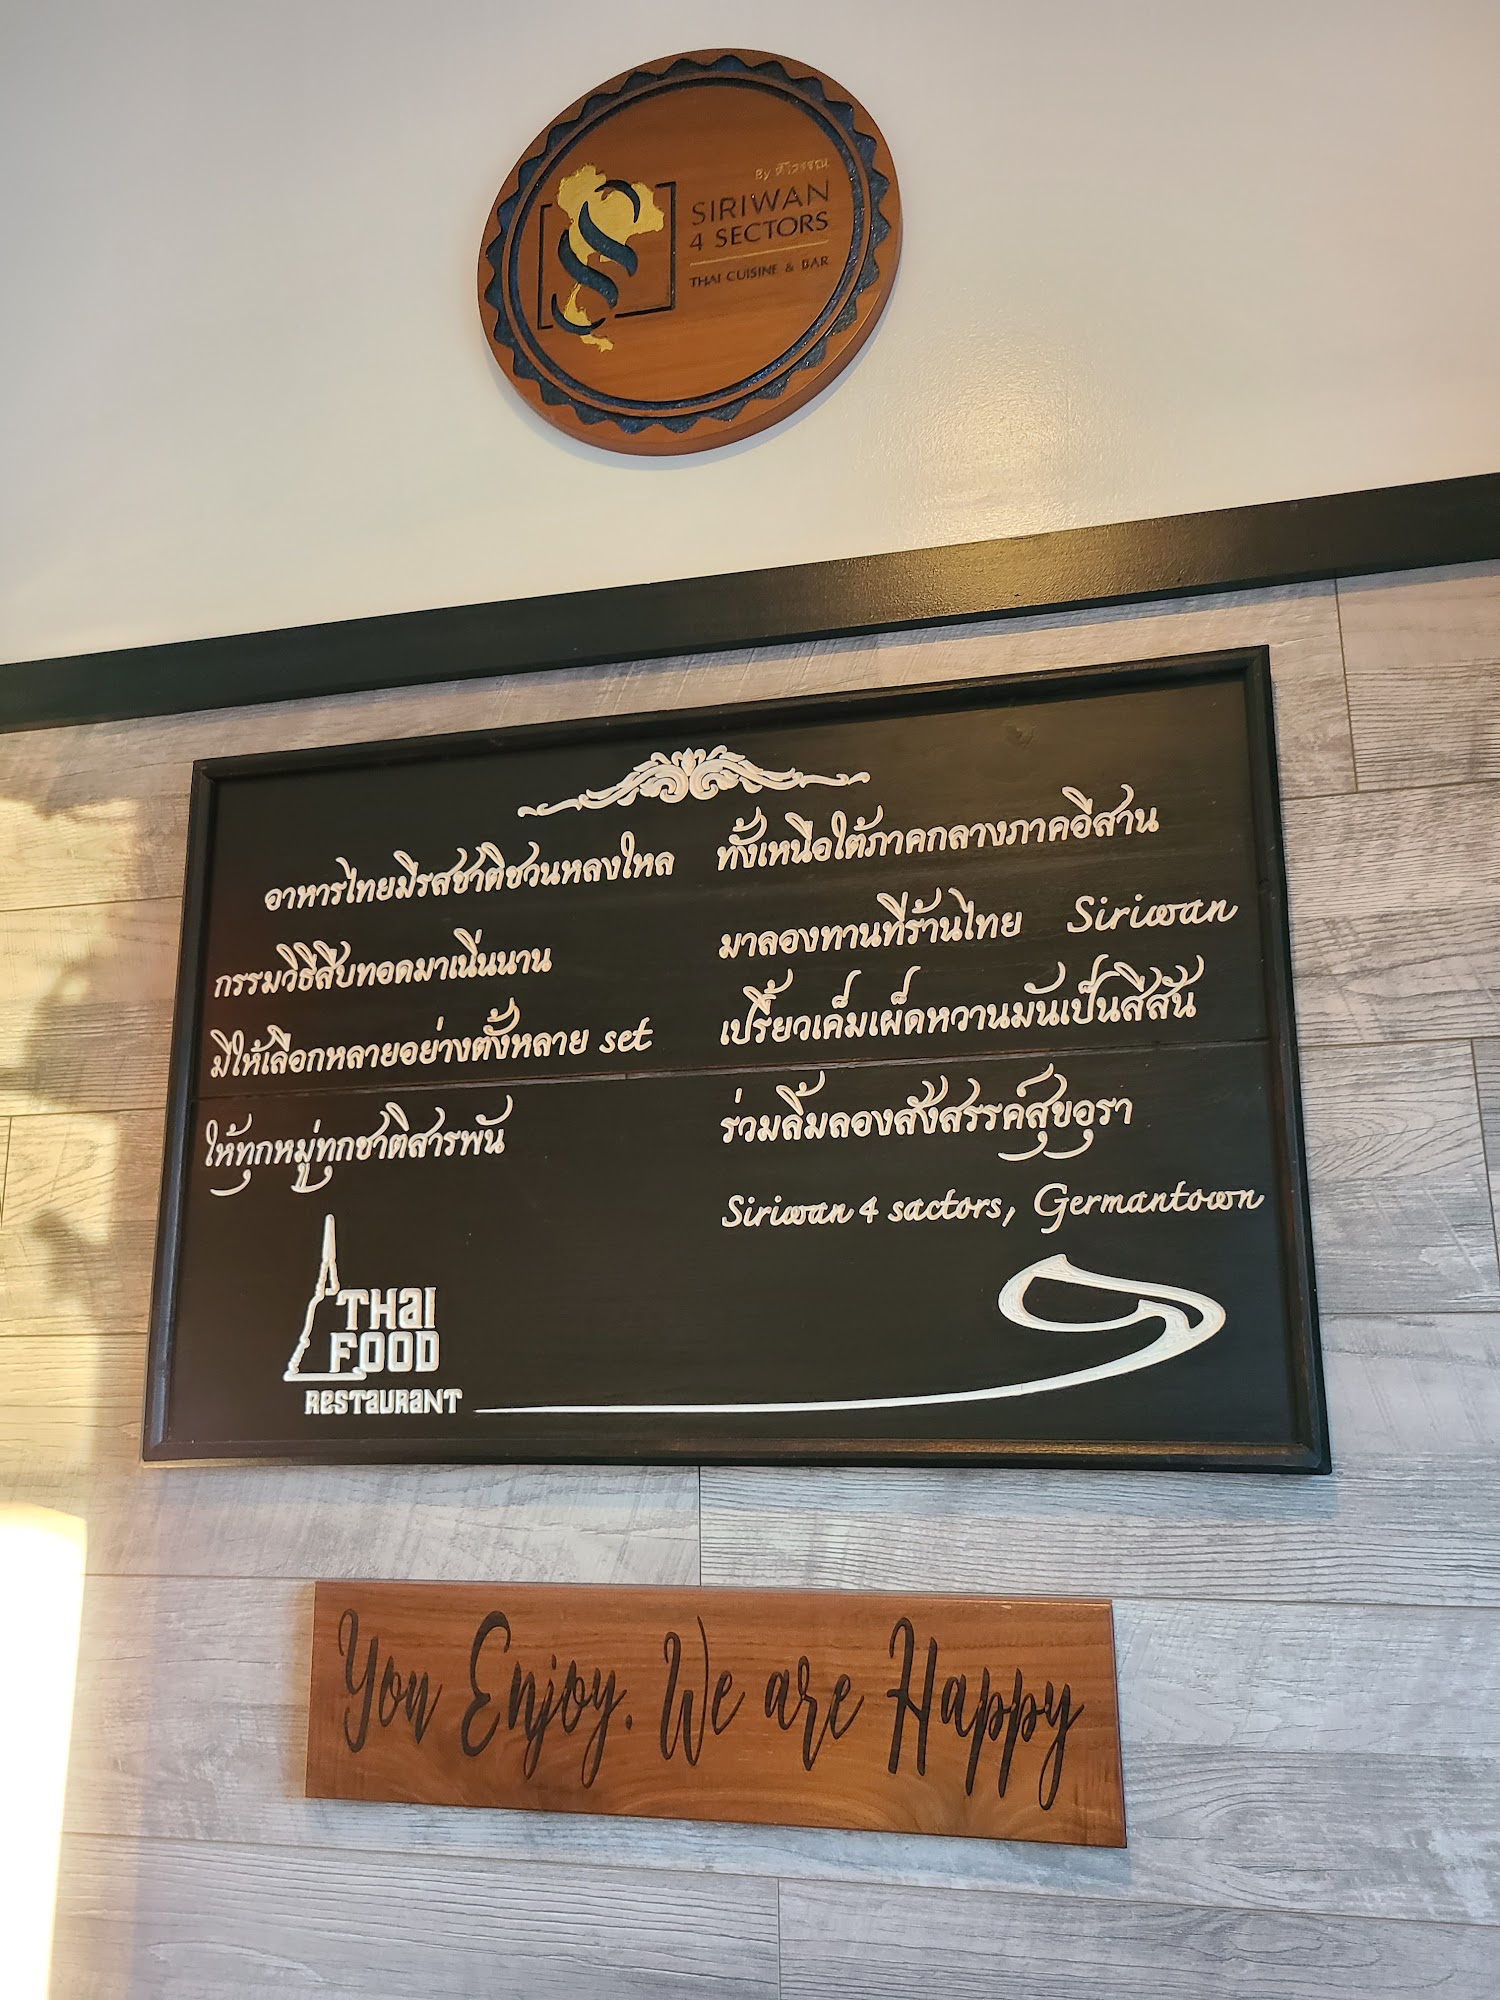 By ศิริวรรณ
SIRIWAN
4 SECTORS
THAI CUISINE & BAR
อาหารไทยมีรสชาติชวนหลงใหล ทั้งเหนือใต้ภาคกลางภาคอีสาน
กรรมวิธีสืบทอดมาเนิ่นนาน มาลองทานที่ร้านไทย Siriwan
มีให้เลือกหลายอย่างตั้งหลาย set เปรี้ยวเค็มเผ็ดหวานมันเป็นสีสัน
ให้ทุกหมู่ทุกชาติสารพัน ร่วมลิ้มลองสังสรรค์สุขอุรา
Siriwan 4 sactors, Germantown
THAI
FOOD
RESTAURANT
You Enjoy. We are Happy